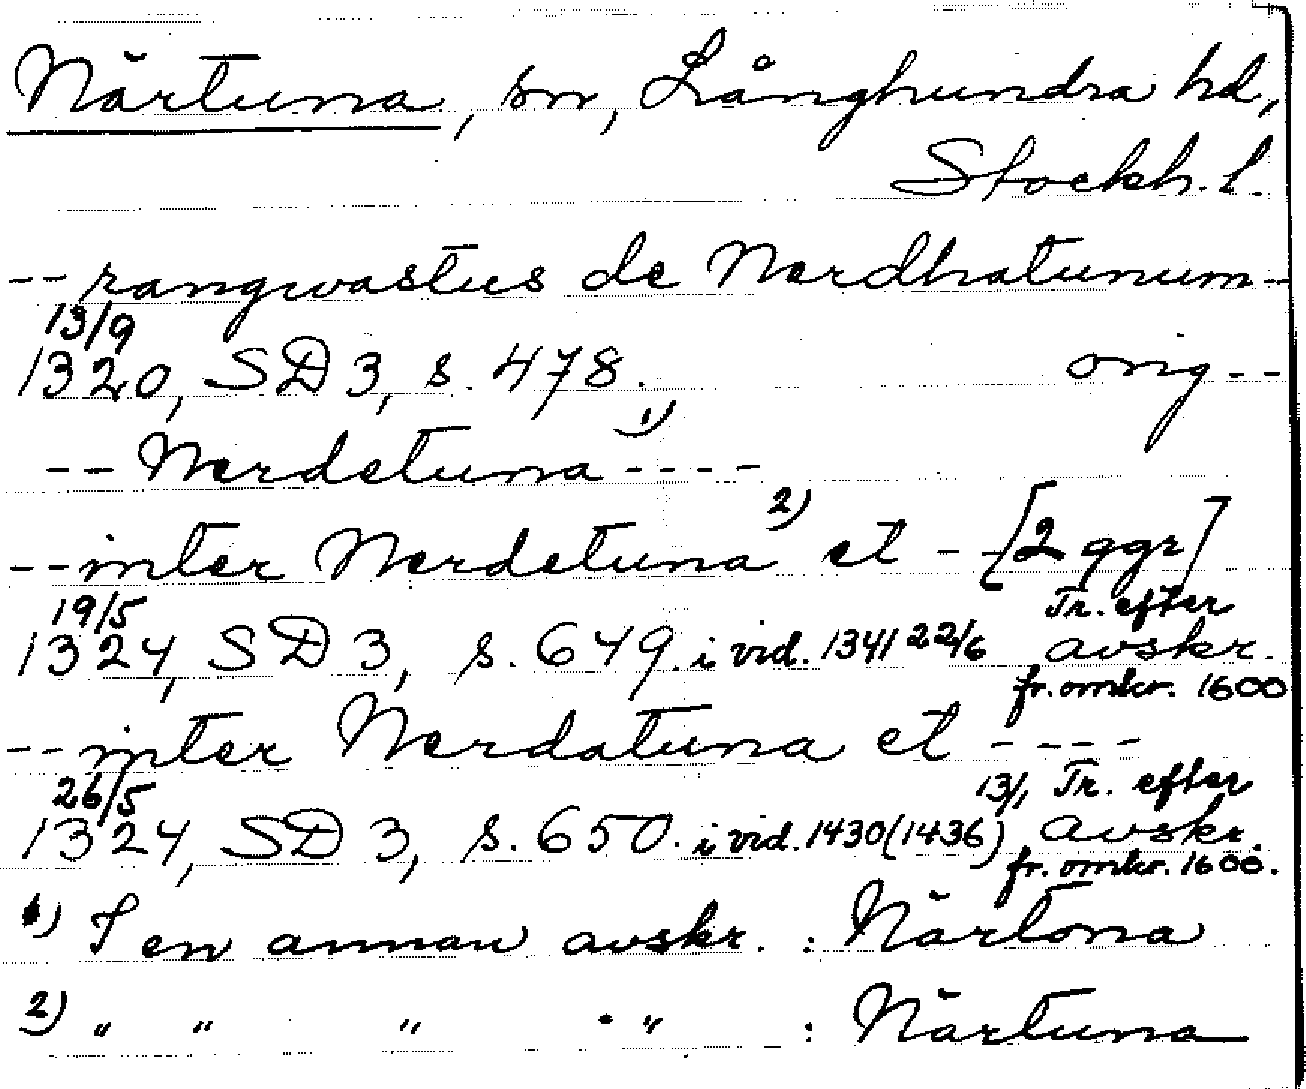 Närtuna, sn, Långhundra hd,
Stockh. l.
-- rangwastus de Nerdhatunum --
13/9
1320, SD 3, s. 478. orig --
-- Nerdetuna 1) ----
-- inter Nerdetuna 2) et -- [2 ggr]
19/5 Tr. efter
1324, SD 3, s. 649. i vid. 1341 22/6 avskr.
fr. omkr. 1600
-- inter Nerdatuna et ----
26/5 13/1 Tr. efter
1324, SD 3, s. 650. i vid. 1430(1436) avskr.
fr. omkr. 1600.
1) I en annan avskr. : Närtona
2) " " " " : Närtuna